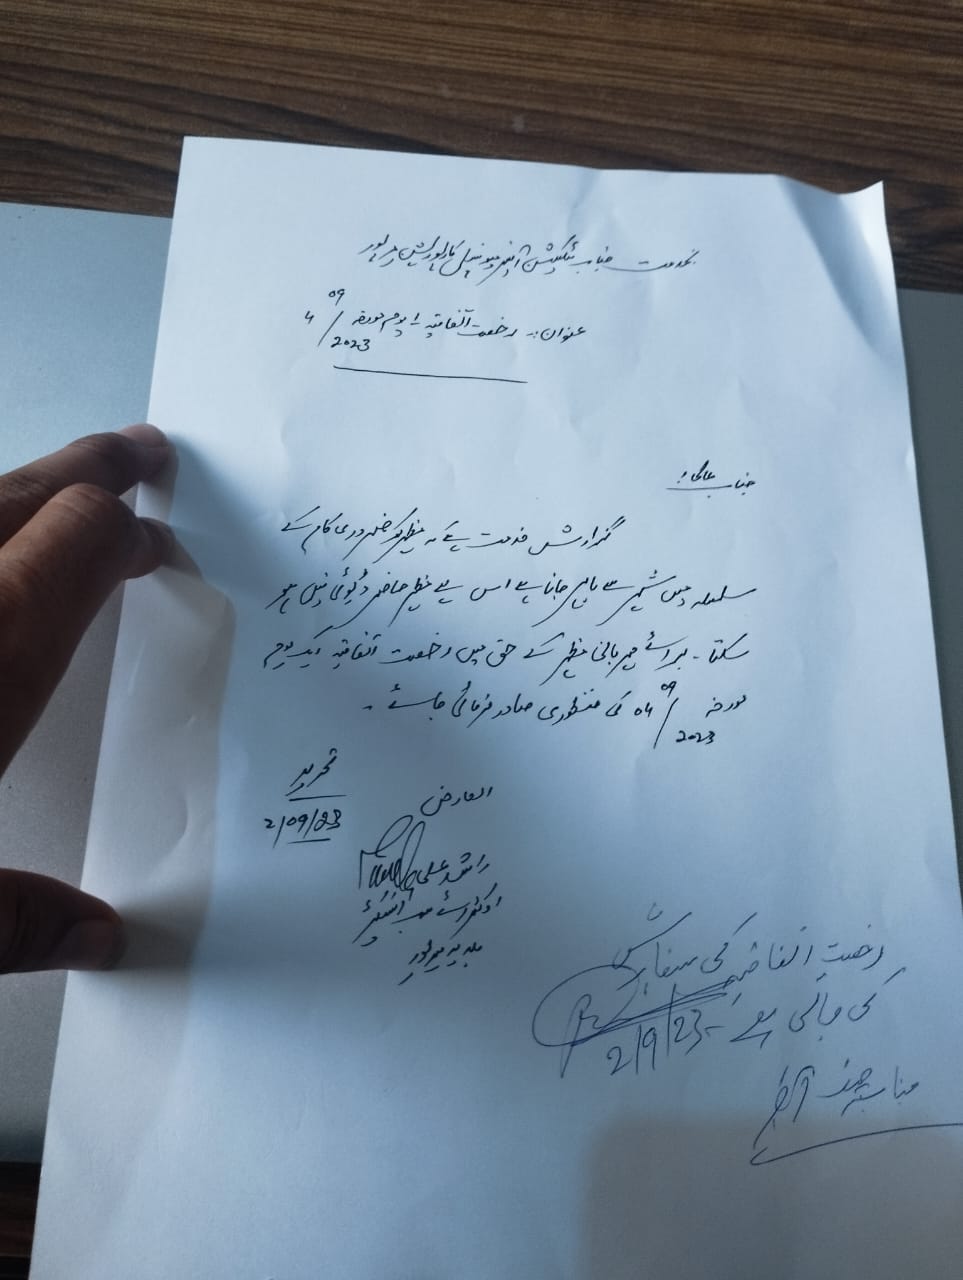 بخدمت جناب ٹیکسیشن آفیسر میونسپل کارپوریشن میرپور
عنوان:۔ رخصت اتفاقیہ 1 یوم مورخہ 4/09/2023
جناب عالی!
گزارش خدمت ہے کہ مظہر کو ضروری کام کے
سلسلہ میں شہر سے باہر جانا ہے اس لیے مظہر حاضر ڈیوٹی نہیں ہو
سکتا۔ برائے مہربانی مظہر کے حق میں رخصت اتفاقیہ ایک یوم
مورخہ 04/09/2023 کی منظوری صادر فرمائی جائے۔
تحریر
2/09/23
العارض
راشد علی
بلدیہ میرپور
رخصت اتفاقیہ کی سفارش
کی جاتی ہے۔ 2/9/23